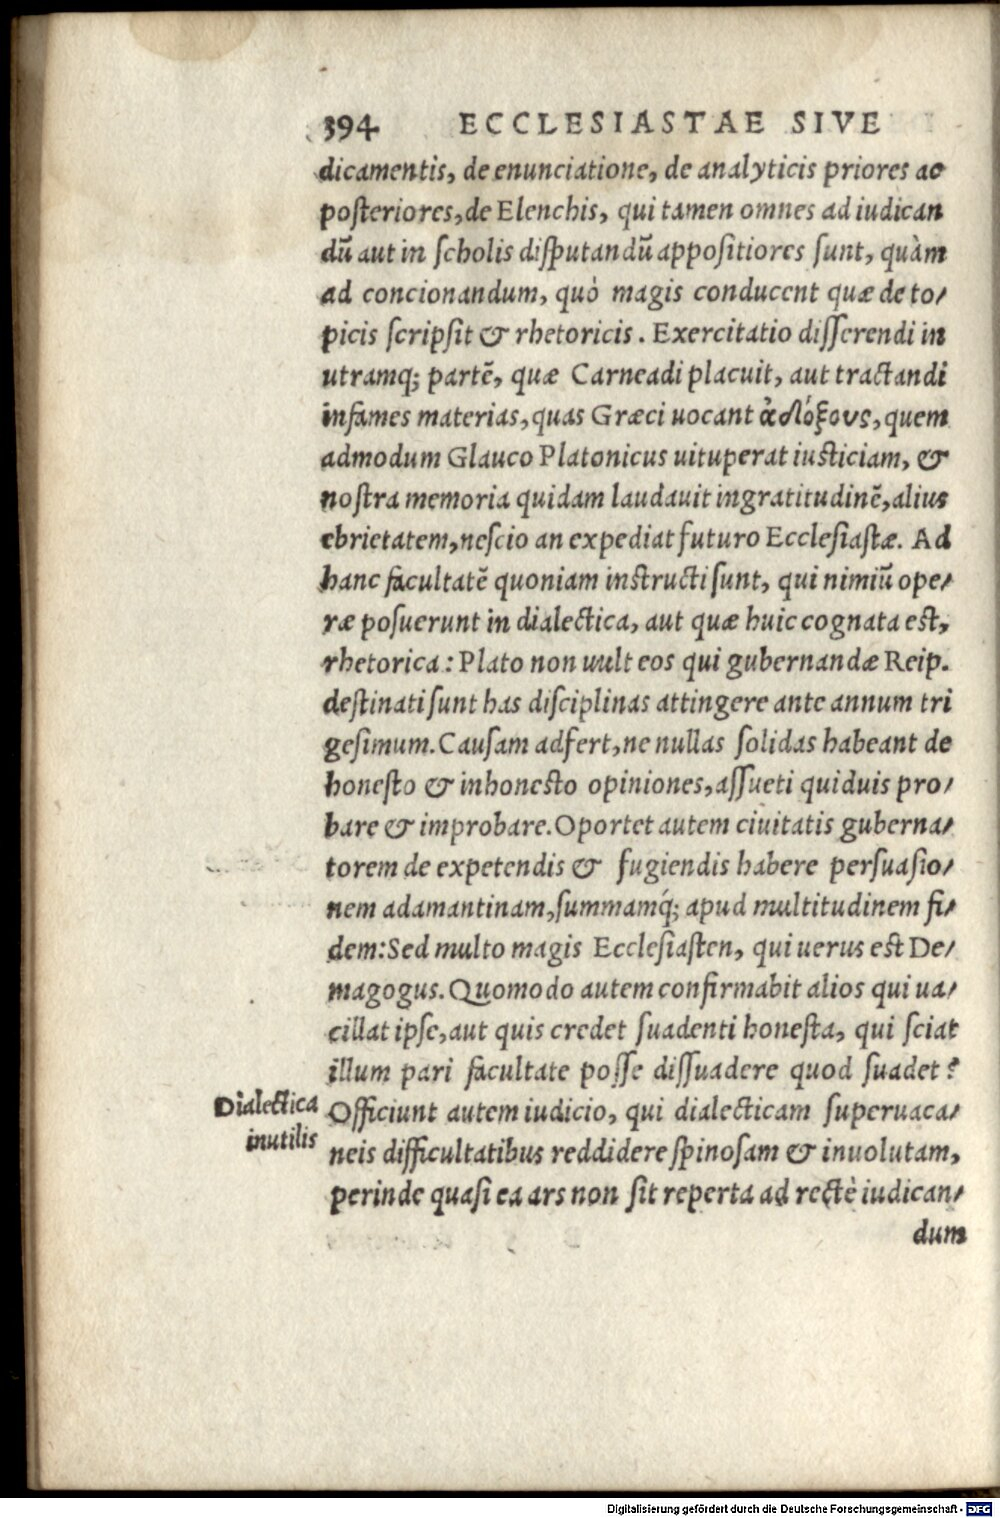 394 ECCLESIASTAE SIVE
dicamentis, de enunciatione, de analyticis priores ac
posteriores, de Elenchis, qui tamen omnes ad iudican
dū aut in scholis disputandū appositiores sunt, quàm
ad concionandum, quò magis conducent quæ de to-
picis scripsit & rhetoricis. Exercitatio disserendi in
utramq; partē, quæ Carneadi placuit, aut tractandi
infames materias, quas Græci uocant ἀδόξους, quem
admodum Glauco Platonicus uituperat iusticiam, &
nostra memoria quidam laudauit ingratitudinē, alius
ebrietatem, nescio an expediat futuro Ecclesiastæ. Ad
hanc facultatē quoniam instructi sunt, qui nimiū ope-
ræ posuerunt in dialectica, aut quæ huic cognata est,
rhetorica: Plato non uult eos qui gubernandæ Reip.
destinati sunt has disciplinas attingere ante annum tri
gesimum. Causam adfert, ne nullas solidas habeant de
honesto & inhonesto opiniones, assueti quiduis pro-
bare & improbare. Oportet autem ciuitatis guberna-
torem de expetendis & fugiendis habere persuasio-
nem adamantinam, summamq́; apud multitudinem fi-
dem: Sed multo magis Ecclesiasten, qui uerus est De-
magogus. Quomodo autem confirmabit alios qui ua-
cillat ipse, aut quis credet suadenti honesta, qui sciat
illum pari facultate posse dissuadere quod suadet?
Dialectica
inutilis
Officiunt autem iudicio, qui dialecticam superuaca-
neis difficultatibus reddidere spinosam & inuolutam,
perinde quasi ea ars non sit reperta ad rectè iudican-
dum
Digitalisierung gefördert durch die Deutsche Forschungsgemeinschaft - DFG